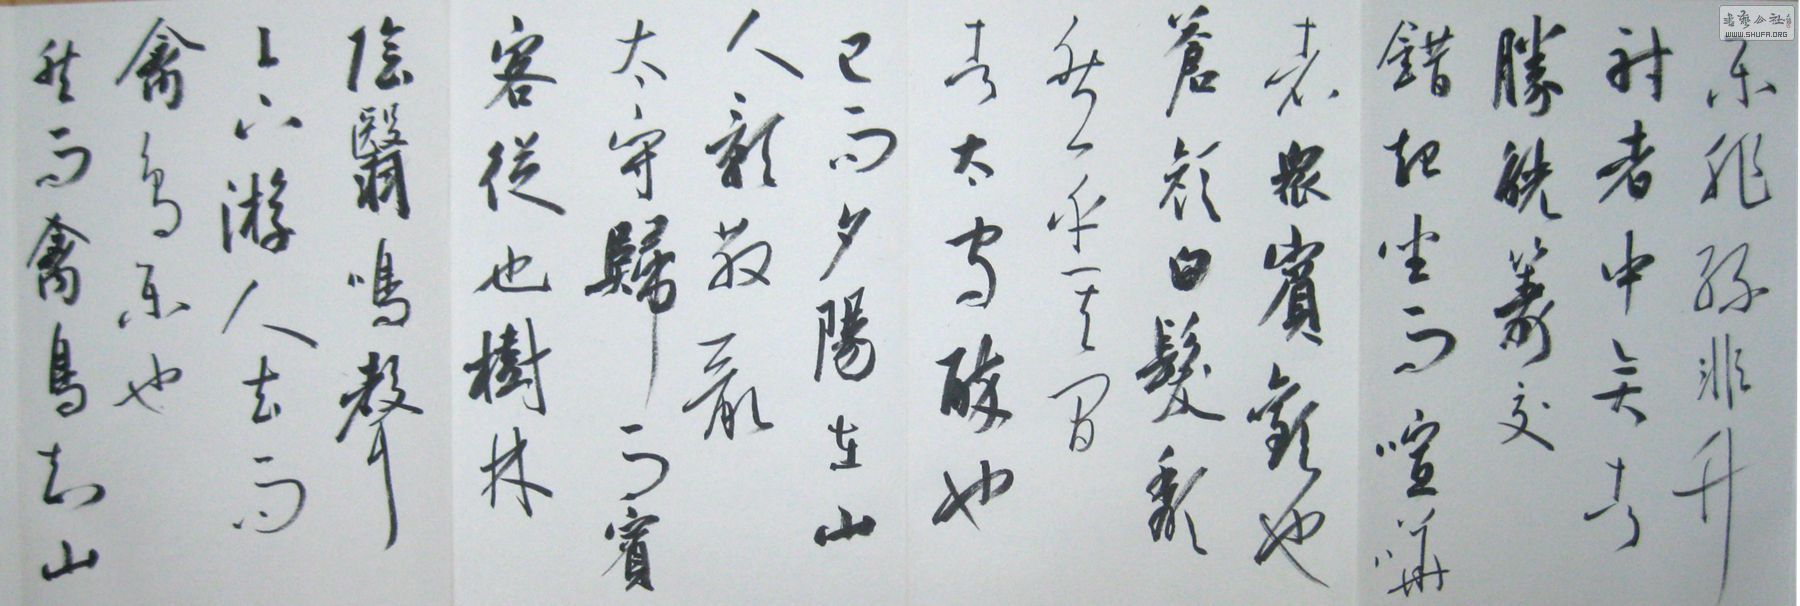 樂非絲非竹
射者中弈者
勝觥籌交
錯起坐而喧嘩
者衆賓歡也
蒼顏白髮頹
然乎其間
者太守醉也
已而夕陽在山
人影散亂
太守歸而賓
客從也樹林
陰翳鳴聲
上下游人去而
禽鳥樂也
然而禽鳥知山
書藝公社
WWW.SHUFA.ORG